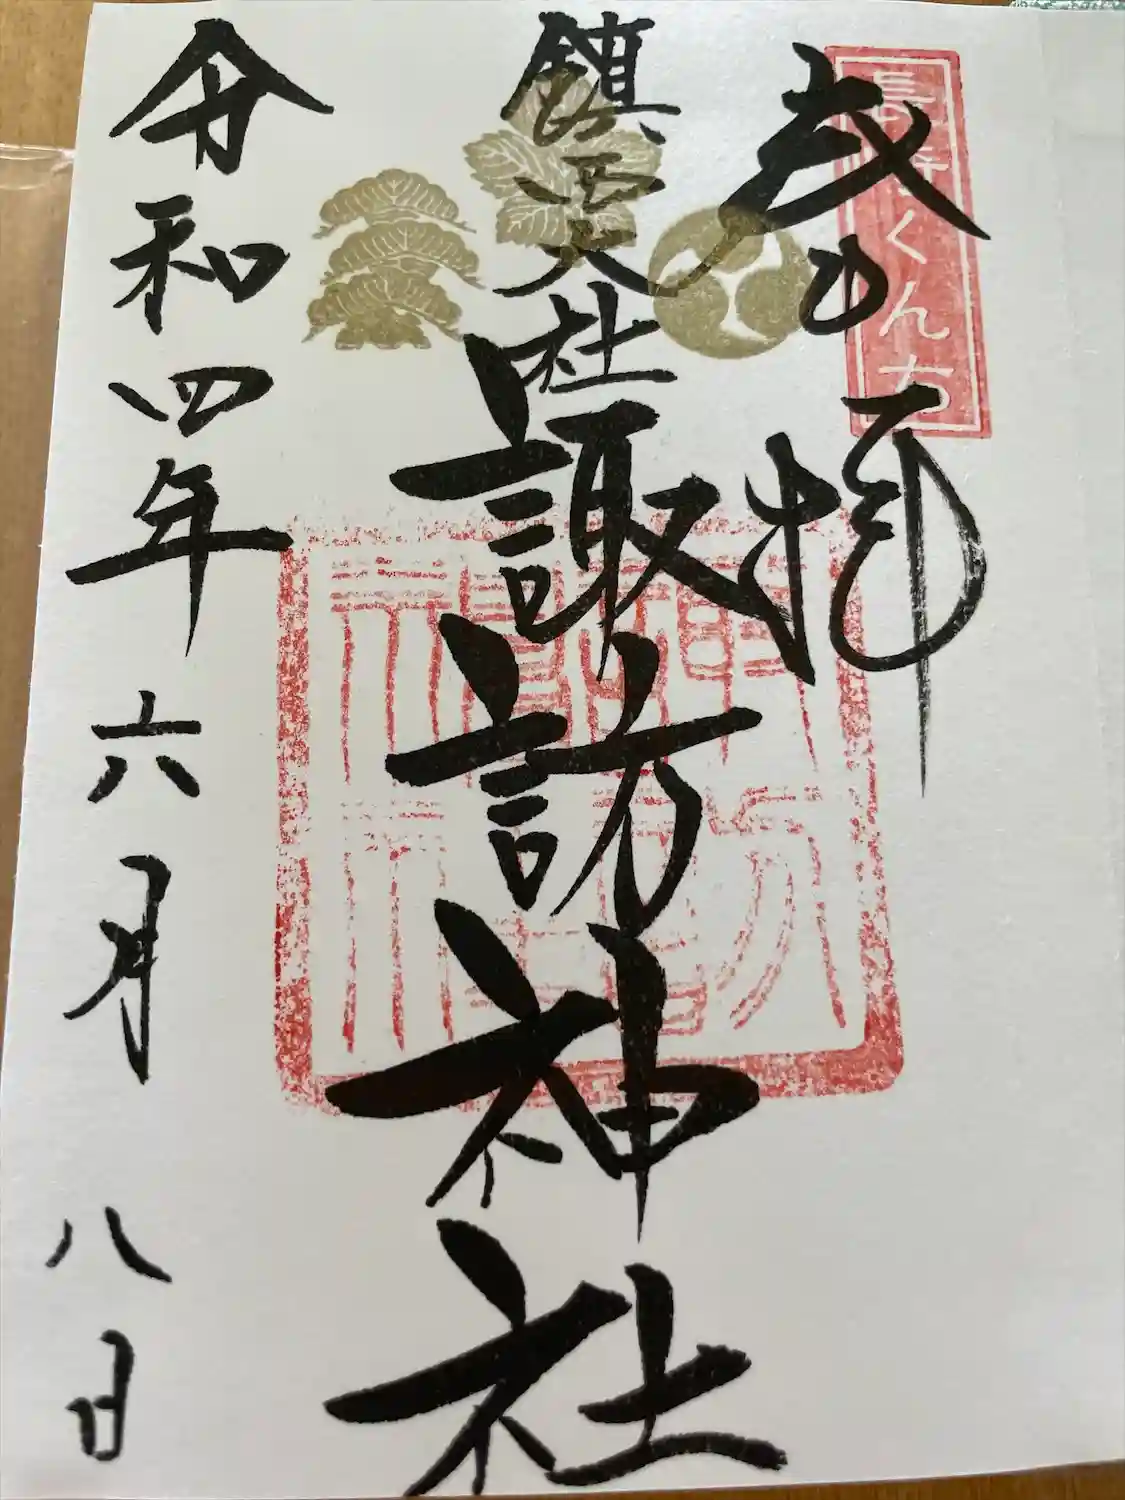 長崎くんち
奉拝
鎮西大社
諏訪神社
令和四年六月八日